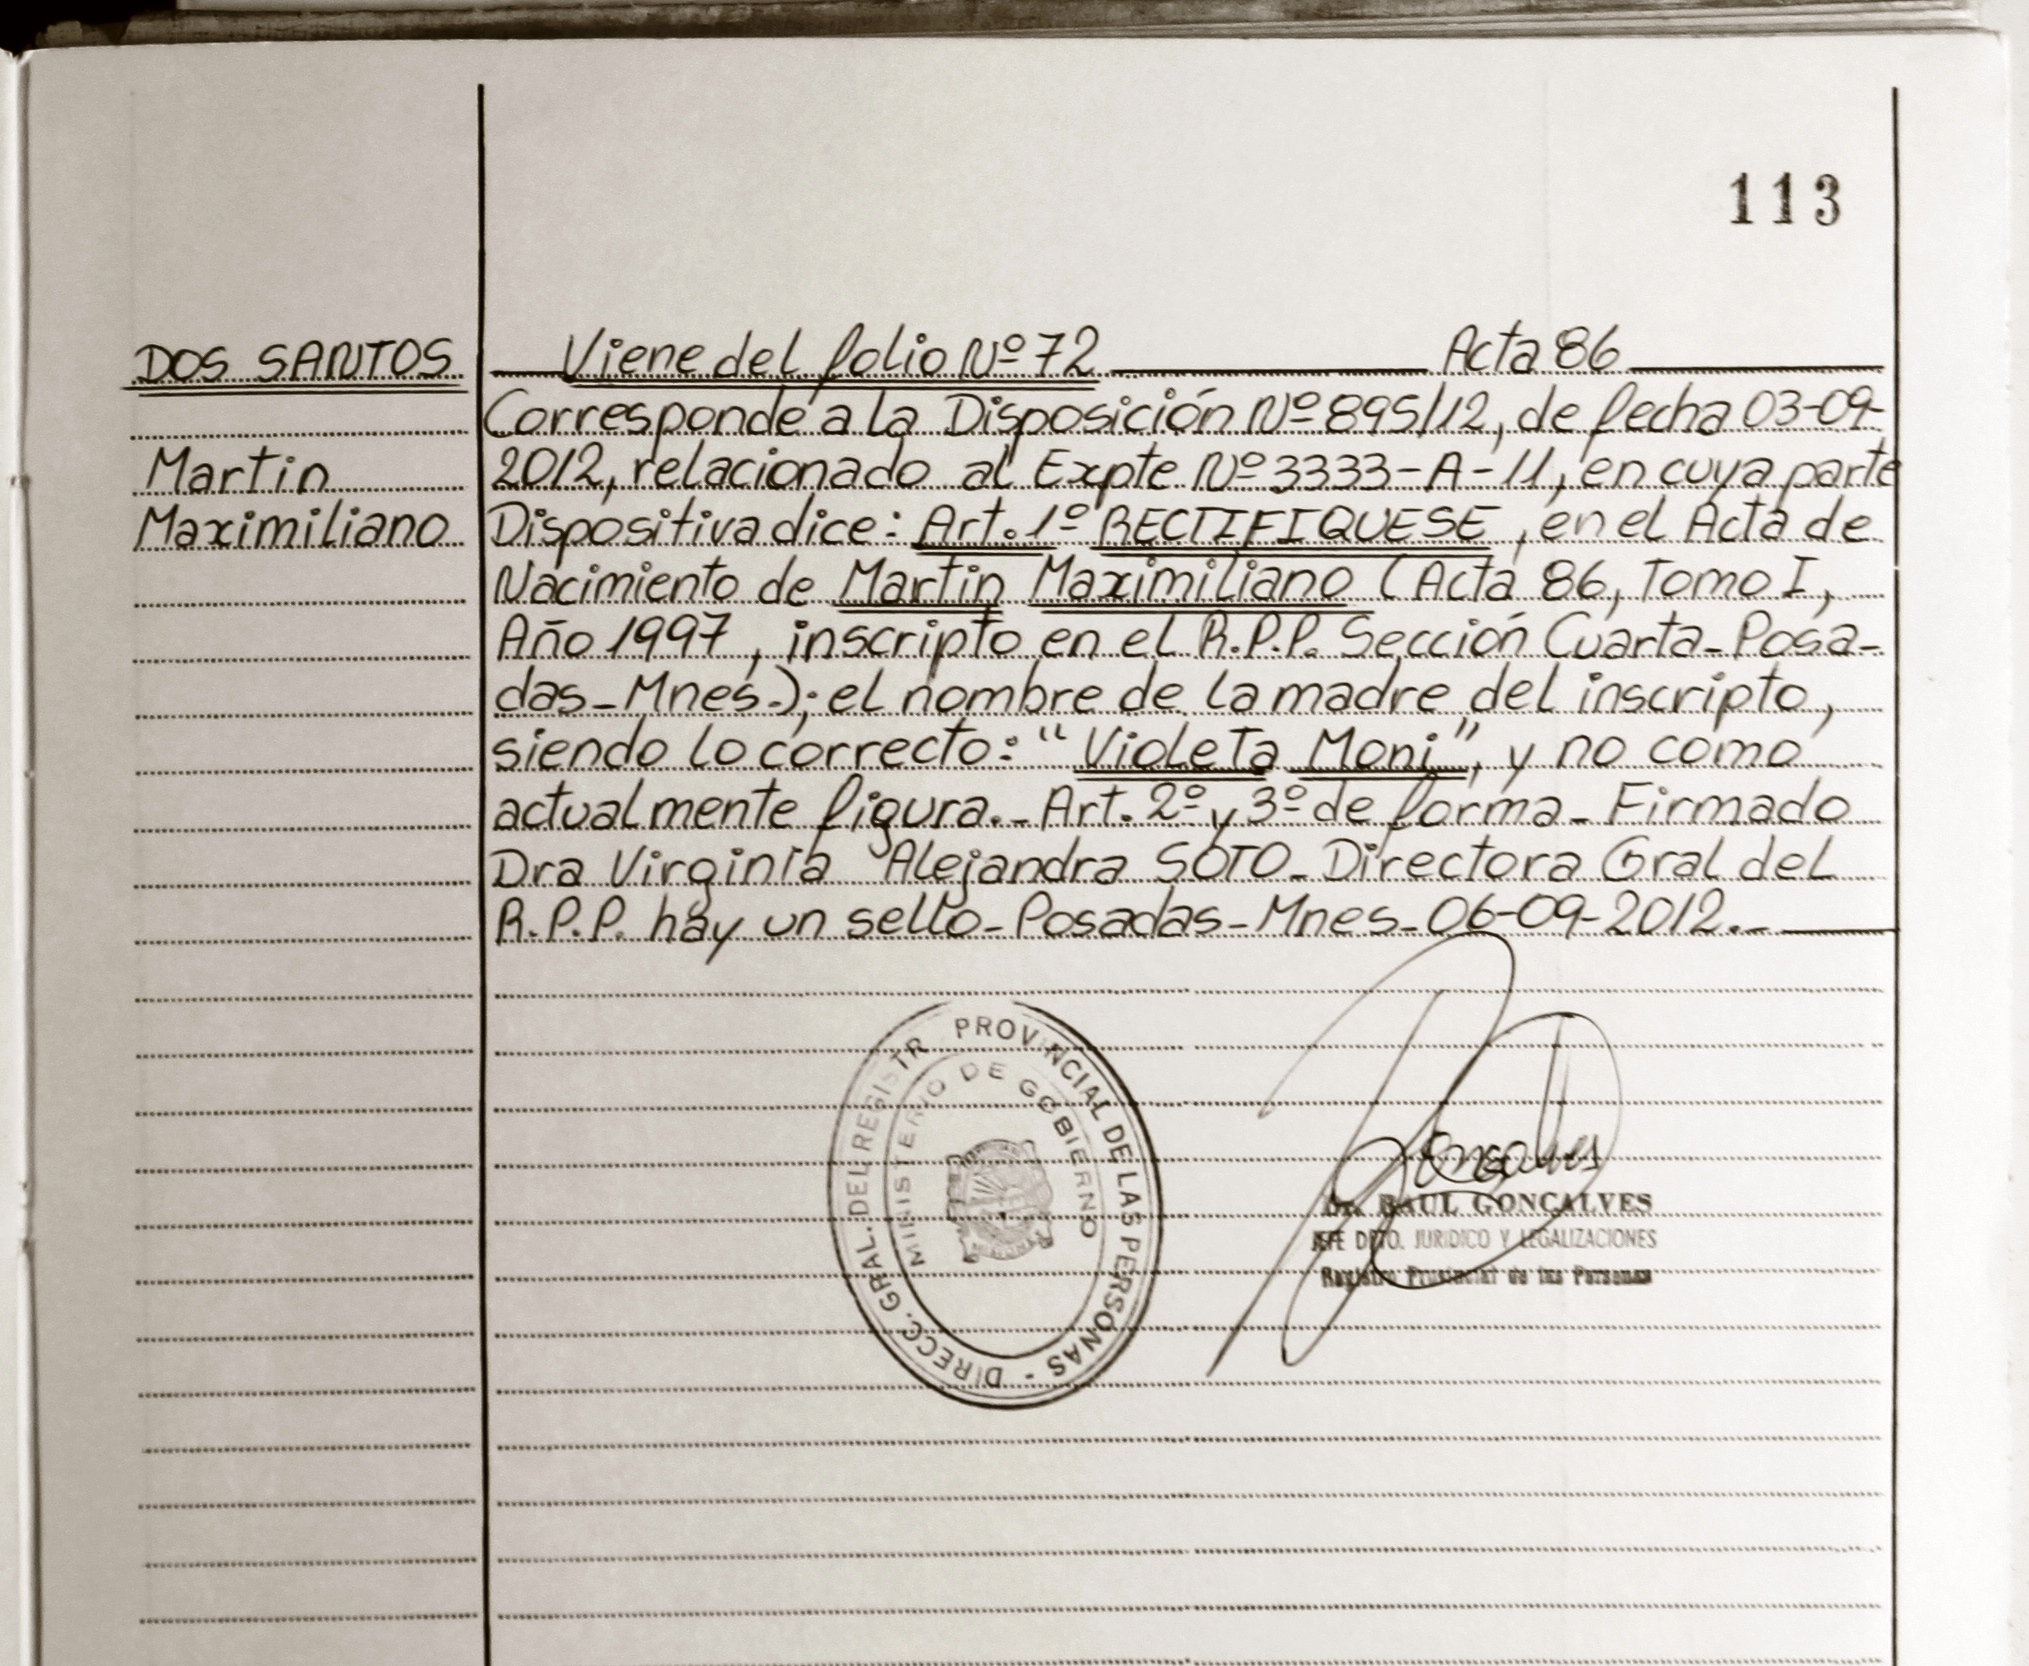 113
DOS SANTOS
Martin
Maximiliano
Viene del folio Nº 72 Acta 86
Corresponde a la Disposición Nº 895/12, de fecha 03-09-
2012, relacionado al Expte Nº 3333-A-11, en cuya parte
Dispositiva dice: Art. 1º RECTIFIQUESE, en el Acta de
Nacimiento de Martin Maximiliano (Acta 86, Tomo I,
Año 1997, inscripto en el R.P.P. Sección Cuarta-Posa-
das-Mnes.); el nombre de la madre del inscripto,
siendo lo correcto: "Violeta Moni", y no como
actualmente figura.- Art. 2º y 3º de forma- Firmado
Dra Virginia Alejandra SOTO- Directora Gral del
R.P.P. hay un sello- Posadas-Mnes- 06-09-2012.-
DIRECC. GRAL. DEL REGISTR PROVINCIAL DE LAS PERSONAS -
MINISTERIO DE GOBIERNO
Dr. RAUL GONÇALVES
JEFE DPTO. JURIDICO Y LEGALIZACIONES
Registro Provincial de las Personas